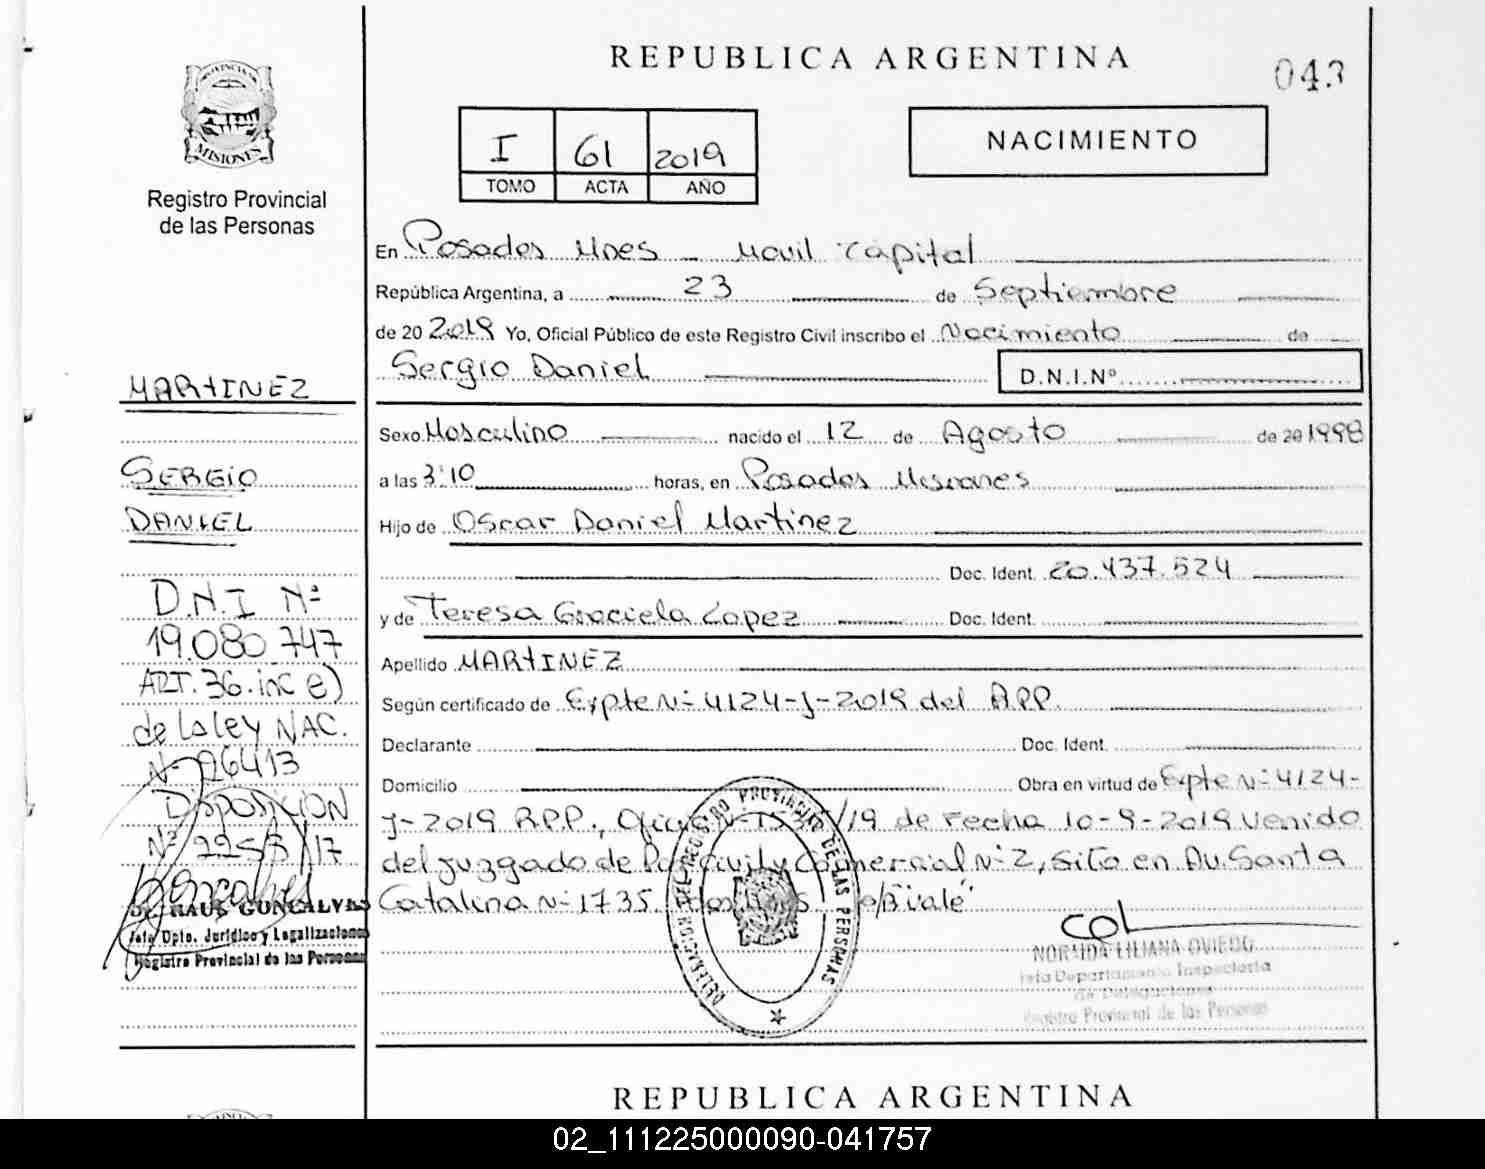 REPUBLICA ARGENTINA
043
PROVINCIA DE
MISIONES
Registro Provincial
de las Personas
I 61 2019
TOMO ACTA AÑO
NACIMIENTO
En Posadas Mnes - Movil Capital
República Argentina, a 23 de Septiembre
de 20 2019 Yo, Oficial Público de este Registro Civil inscribo el Nacimiento de
Sergio Daniel D.N.I.Nº
MARTINEZ
SERGIO
DANIEL
D.N.I Nº
19.080 747
ART. 36. inc e)
de la ley NAC.
Nº 26413
DISPOSICION
Nº 2258/17
RAUL GONCALVES
Jefe Dpto. Jurídico y Legalizaciones
Registro Provincial de las Personas
Sexo Masculino nacido el 12 de Agosto de 20 1998
a las 3:10 horas, en Posadas Misiones
Hijo de Oscar Daniel Martinez
Doc. Ident. 20.437.524
y de Teresa Graciela Lopez Doc. Ident.
Apellido MARTINEZ
Según certificado de Expte Nº 4124-J-2019 del RPP.
Declarante Doc. Ident.
Domicilio Obra en virtud de Expte Nº 4124-
J-2019 R.P.P., Oficio Nº /19 de Fecha 10-9-2019 venido
del juzgado de Paz Civil y Comercial Nº 2, sito en Av. Santa
Catalina Nº 1735. Posadas "Vale"
DELEGACIONES DEL REGISTRO PROVINCIAL DE LAS PERSONAS
NORMIDA LILIANA OVIEDO
Jefa Departamento Inspectoria
de Delegaciones
Registro Provincial de las Personas
REPUBLICA ARGENTINA
02_111225000090-041757